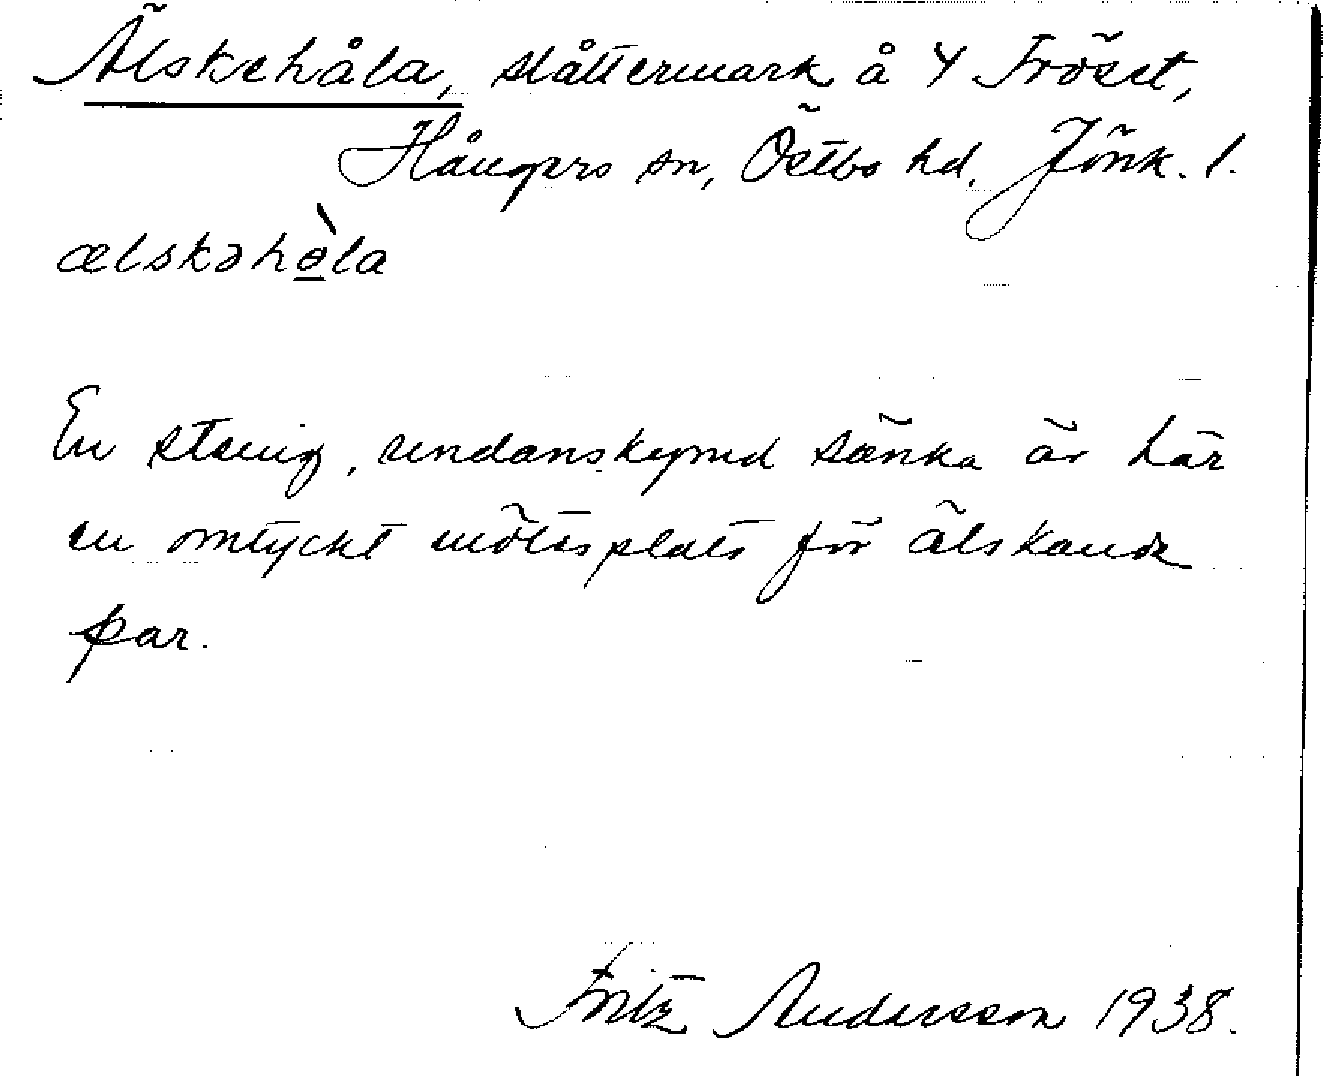 Älskehåla, slåttermark å 4 Fröset,
Hångers sn, Östbo hd. Jönk. l.
ælskəhò̱la
En stenig, undanskymd sänka är här
en omtyckt mötesplats för älskande
par.
Fritz Andersson 1938.